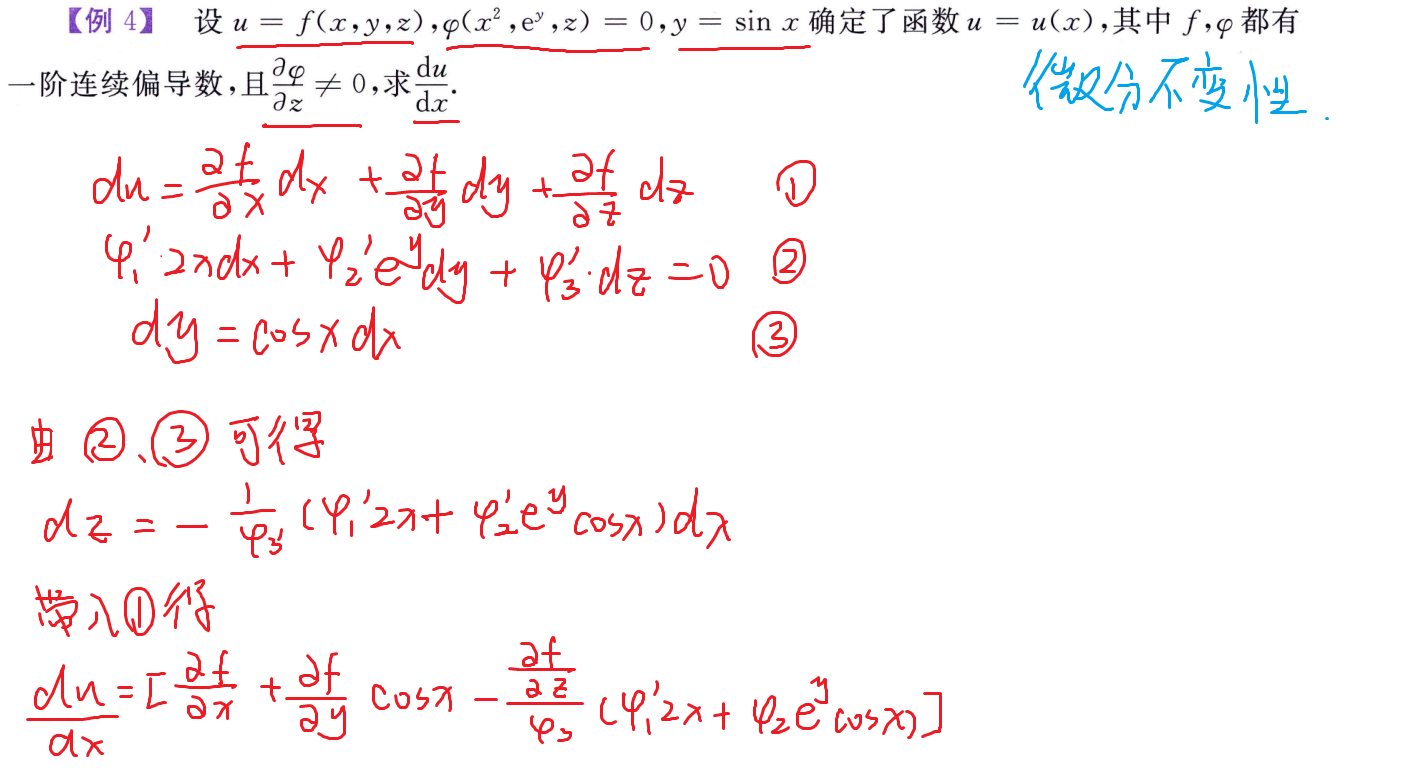 【例 4】 设 u = f(x,y,z),φ(x²,eʸ,z) = 0,y = sin x 确定了函数 u = u(x),其中 f,φ 都有
一阶连续偏导数,且∂φ/∂z ≠ 0,求du/dx.
微分不变性.
du = ∂f/∂x dx + ∂f/∂y dy + ∂f/∂z dz ①
φ₁'·2xdx + φ₂'eʸdy + φ₃'·dz = 0 ②
dy = cosx dx ③
由 ②、③ 可得
dz = - 1/φ₃' (φ₁'2x + φ₂'eʸcosx)dx
带入①得
du/dx = [∂f/∂x + ∂f/∂y cosx - (∂f/∂z)/φ₃ (φ₁'2x + φ₂eʸcosx)]